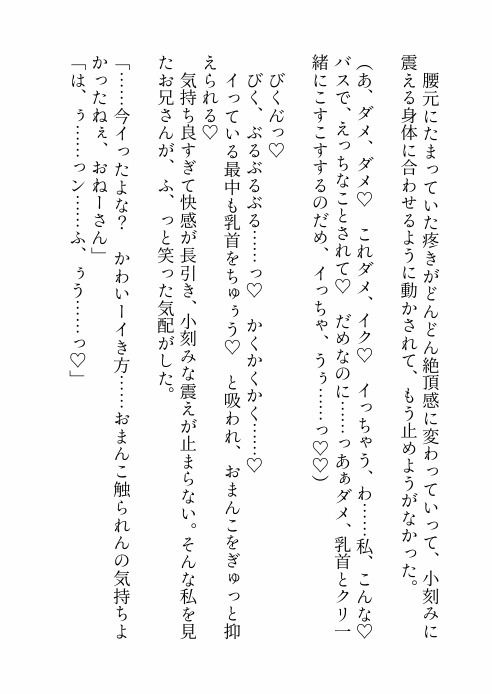 腰元にたまっていた疼きがどんどん絶頂感に変わっていって、小刻みに
震える身体に合わせるように動かされて、もう止めようがなかった。
(あ、ダメ、ダメ♡　これダメ、イク♡　イっちゃう、わ……私、こんな♡
バスで、えっちなことされて♡　だめなのに……っあぁダメ、乳首とクリ一
緒にこすこすするのだめ、イっちゃ、うぅ……っ♡♡)
びくんっ♡
びく、ぶるぶるぶる……っ♡　かくかくかく……♡
イっている最中も乳首をちゅぅう♡　と吸われ、おまんこをぎゅっと抑
えられる♡
気持ち良すぎて快感が長引き、小刻みな震えが止まらない。そんな私を見
たお兄さんが、ふ、っと笑った気配がした。
「……今イったよな？　かわいーイき方……おまんこ触られんの気持ちよ
かったねぇ、おねーさん」
「は、ぅ……っン……ふ、ぅう……っ♡」